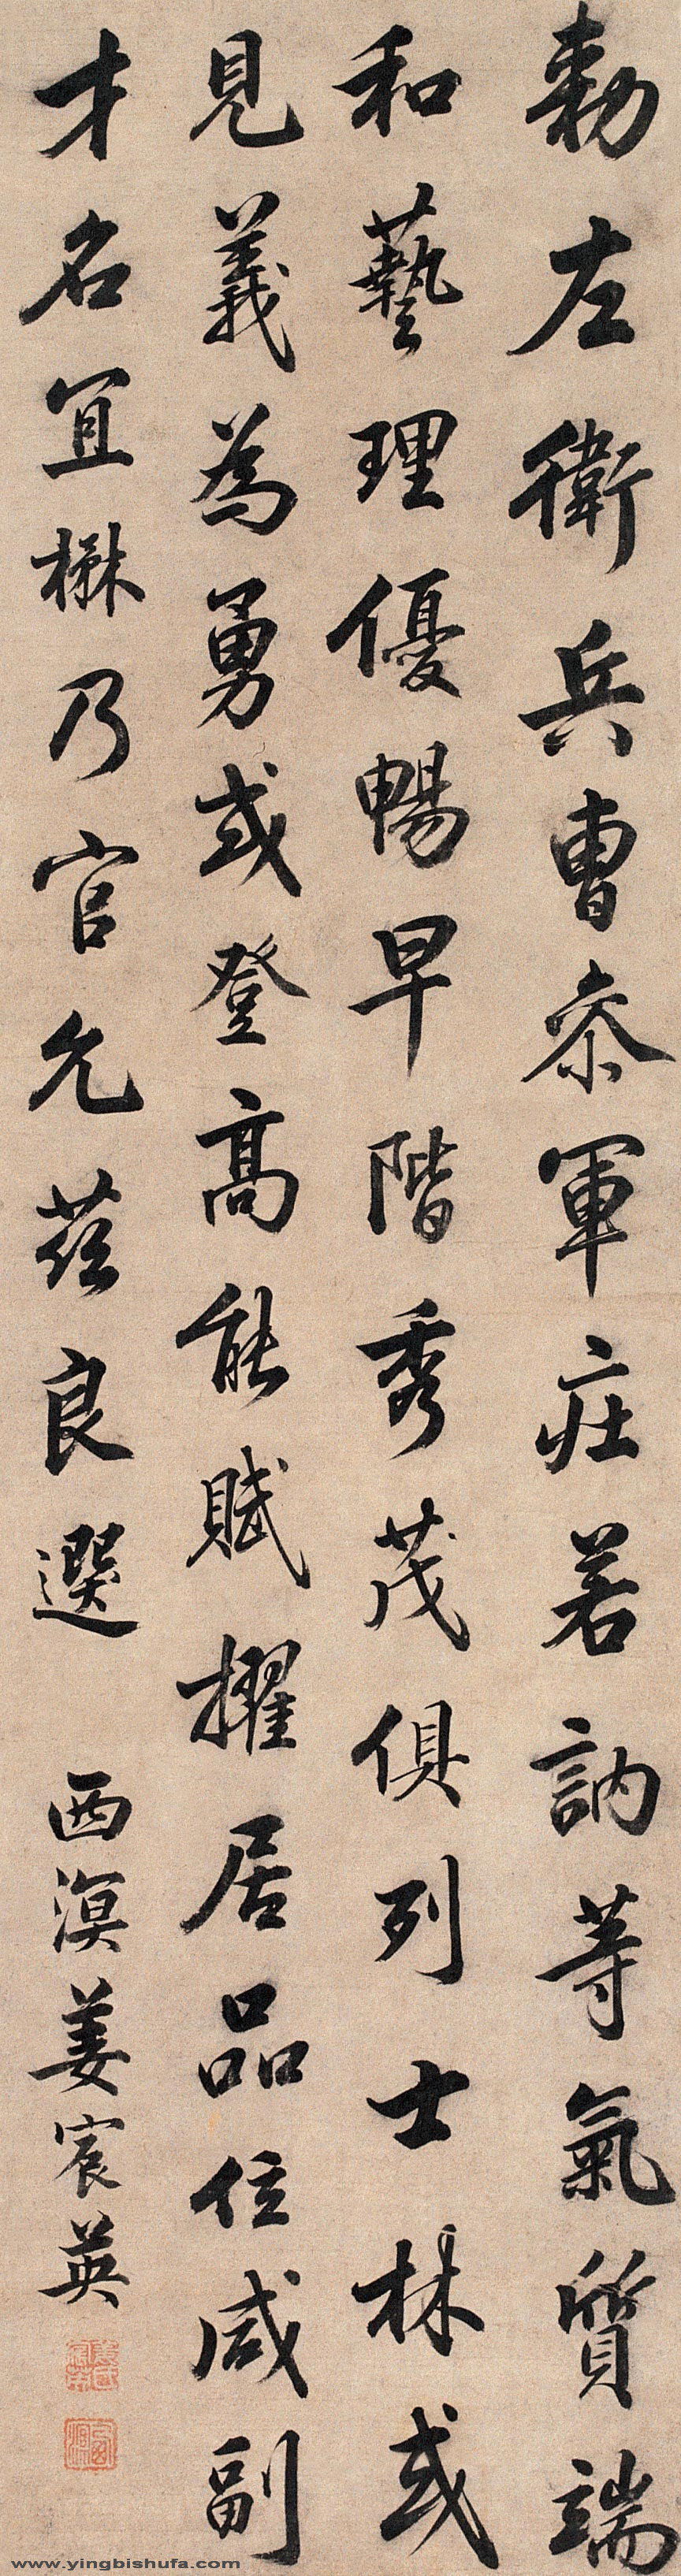 勅左衛兵曹叅軍庄若訥等氣質端
和藝理優暢早階秀茂俱列士林或
見義為勇或登高能賦擢居品位咸副
才名宜楙乃官允茲良選
西溟姜宸英
www.yingbishufa.com